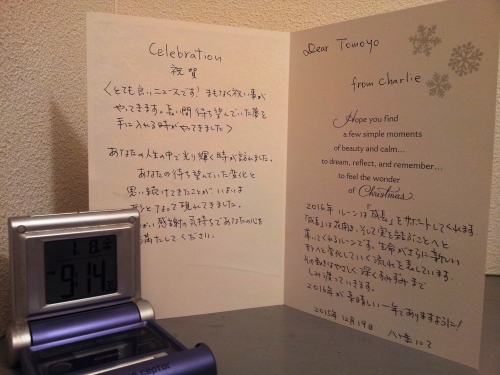 Celebration
祝賀
〈とても良いニュースです! まもなく祝い事が
やってきます。長い間待ち望んでいた事を
手に入れる時がやってきました〉
あなたの人生の中で光り輝く時が訪れました。
あなたの待ち望んでいた変化と
思い続けてきたことが、いよいよ
となって現れてきました。
感謝の気持ちであなたの心を
満たしてください。
Dear Tomoyo
from charlie
Hope you find
a few simple moments
of beauty and calm...
to dream, reflect, and remember...
to feel the wonder
of Christmas.
2016年 ルーンは「成長」をサポートしてくれます
「成長」は開花、そして実を結ぶことへと
導いてくれるルーンです。生命がさらに新しい
へと変化していく流れを表しています。
その動きはやさしく深くすみずみまで
しみ渡っていきます。
2016年が素晴しい一年でありますように!
2015年12月19日 八ヶ岳にて
1. 8
9:14